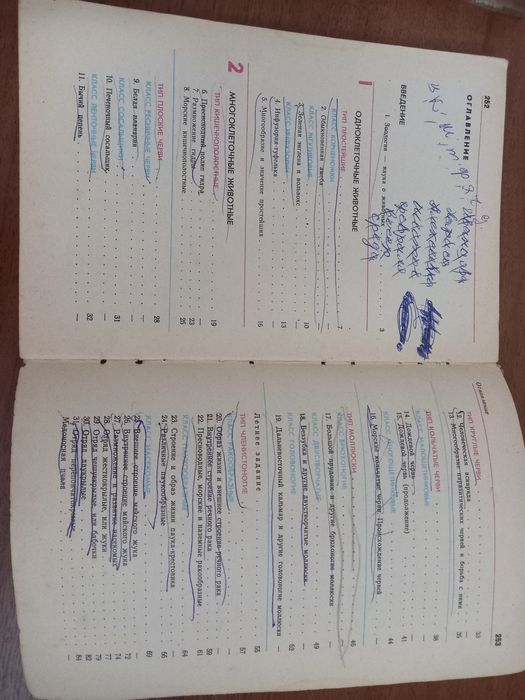 252
ОГЛАВЛЕНИЕ
ВВЕДЕНИЕ
1. Зоология — наука о животных 3
1
ОДНОКЛЕТОЧНЫЕ ЖИВОТНЫЕ
ТИП ПРОСТЕЙШИЕ 7
КЛАСС КОРНЕНОЖКИ
2. Обыкновенная амёба —
КЛАСС ЖГУТИКОВЫЕ
3. Зеленая эвглена и вольвокс 10
КЛАСС ИНФУЗОРИИ
4. Инфузория-туфелька 13
5. Многообразие и значение простейших 16
2
МНОГОКЛЕТОЧНЫЕ ЖИВОТНЫЕ
ТИП КИШЕЧНОПОЛОСТНЫЕ 19
6. Пресноводный полип гидра —
7. Размножение гидры 23
8. Морские кишечнополостные 25
ТИП ПЛОСКИЕ ЧЕРВИ 28
КЛАСС РЕСНИЧНЫЕ ЧЕРВИ
9. Белая планария —
КЛАСС СОСАЛЬЩИКИ 31
10. Печеночный сосальщик —
КЛАСС ЛЕНТОЧНЫЕ ЧЕРВИ 32
11. Бычий цепень —
Оглавление
253
ТИП КРУГЛЫЕ ЧЕРВИ 33
12. Человеческая аскарида —
13. Многообразие паразитических червей и борьба с ними 35
ТИП КОЛЬЧАТЫЕ ЧЕРВИ 38
КЛАСС МАЛОЩЕТИНКОВЫЕ
14. Дождевой червь —
15. Дождевой червь (продолжение) 41
16. Морские кольчатые черви. Происхождение червей 44
ТИП МОЛЛЮСКИ 46
КЛАСС БРЮХОНОГИЕ
17. Большой прудовик и другие брюхоногие моллюски —
КЛАСС ДВУСТВОРЧАТЫЕ 49
18. Беззубка и другие двустворчатые моллюски —
КЛАСС ГОЛОВОНОГИЕ 52
19. Дальневосточный кальмар и другие головоногие моллюски —
Летнее задание 55
ТИП ЧЛЕНИСТОНОГИЕ 57
КЛАСС РАКООБРАЗНЫЕ
20. Образ жизни и внешнее строение речного рака —
21. Внутреннее строение речного рака 59
22. Пресноводные, морские и наземные ракообразные 61
КЛАСС ПАУКООБРАЗНЫЕ 64
23. Строение и образ жизни паука-крестовика —
24. Различные паукообразные 66
КЛАСС НАСЕКОМЫЕ 69
25. Внешнее строение майского жука —
26. Внутреннее строение майского жука 72
27. Размножение и развитие насекомых 74
28. Отряд жесткокрылые, или жуки 77
29. Отряд чешуекрылые, или бабочки 79
30. Отряд двукрылые 82
31. Отряд перепончатокрылые. 84
Медоносная пчела